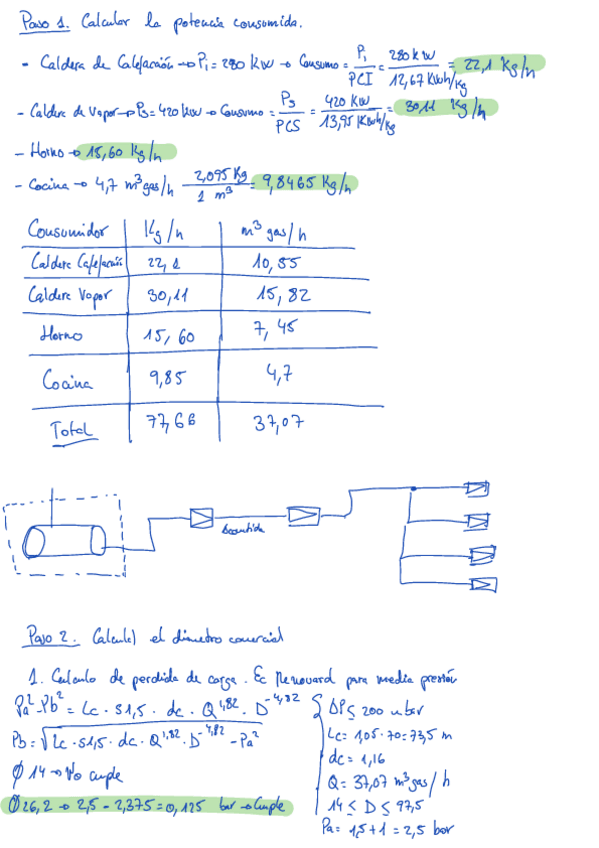 Paso 1. Calcular la potencia consumida.
- Caldera de Calefacción → P₁ = 280 kW → Consumo = P₁/PCI = 280 kW/12,67 kWh/kg = 22,1 Kg/h
- Caldera de Vapor → P₃ = 420 kW → Consumo = P₃/PCS = 420 kW/13,95 kWh/kg = 30,11 Kg/h
- Horno → 15,60 Kg/h
- Cocina → 4,7 m³gas/h 2,095 Kg/1 m³ = 9,8465 Kg/h
Consumidor Kg/h m³gas/h
Caldera Calefacción 22,1 10,55
Caldera Vapor 30,11 15,82
Horno 15,60 7,45
Cocina 9,85 4,7
Total 77,66 37,07
Paso 2. Calculo el diametro comercial
1. Calculo de perdida de carga. Ec Renouard para media presión
Pa² - Pb² = Lc · 51,5 · dc · Q^1,82 · D^-4,82
Pb = √(Lc · 51,5 · dc · Q^1,82 · D^-4,82 - Pa²)
Ø 14 → No cumple
Ø 26,2 → 2,5 - 2,375 = 0,125 bar → Cumple
ΔP ≤ 200 mbar
Lc = 1,05 · 70 = 73,5 m
dc = 1,16
Q = 37,07 m³gas/h
14 ≤ D ≤ 97,5
Pa = 1,5 + 1 = 2,5 bar